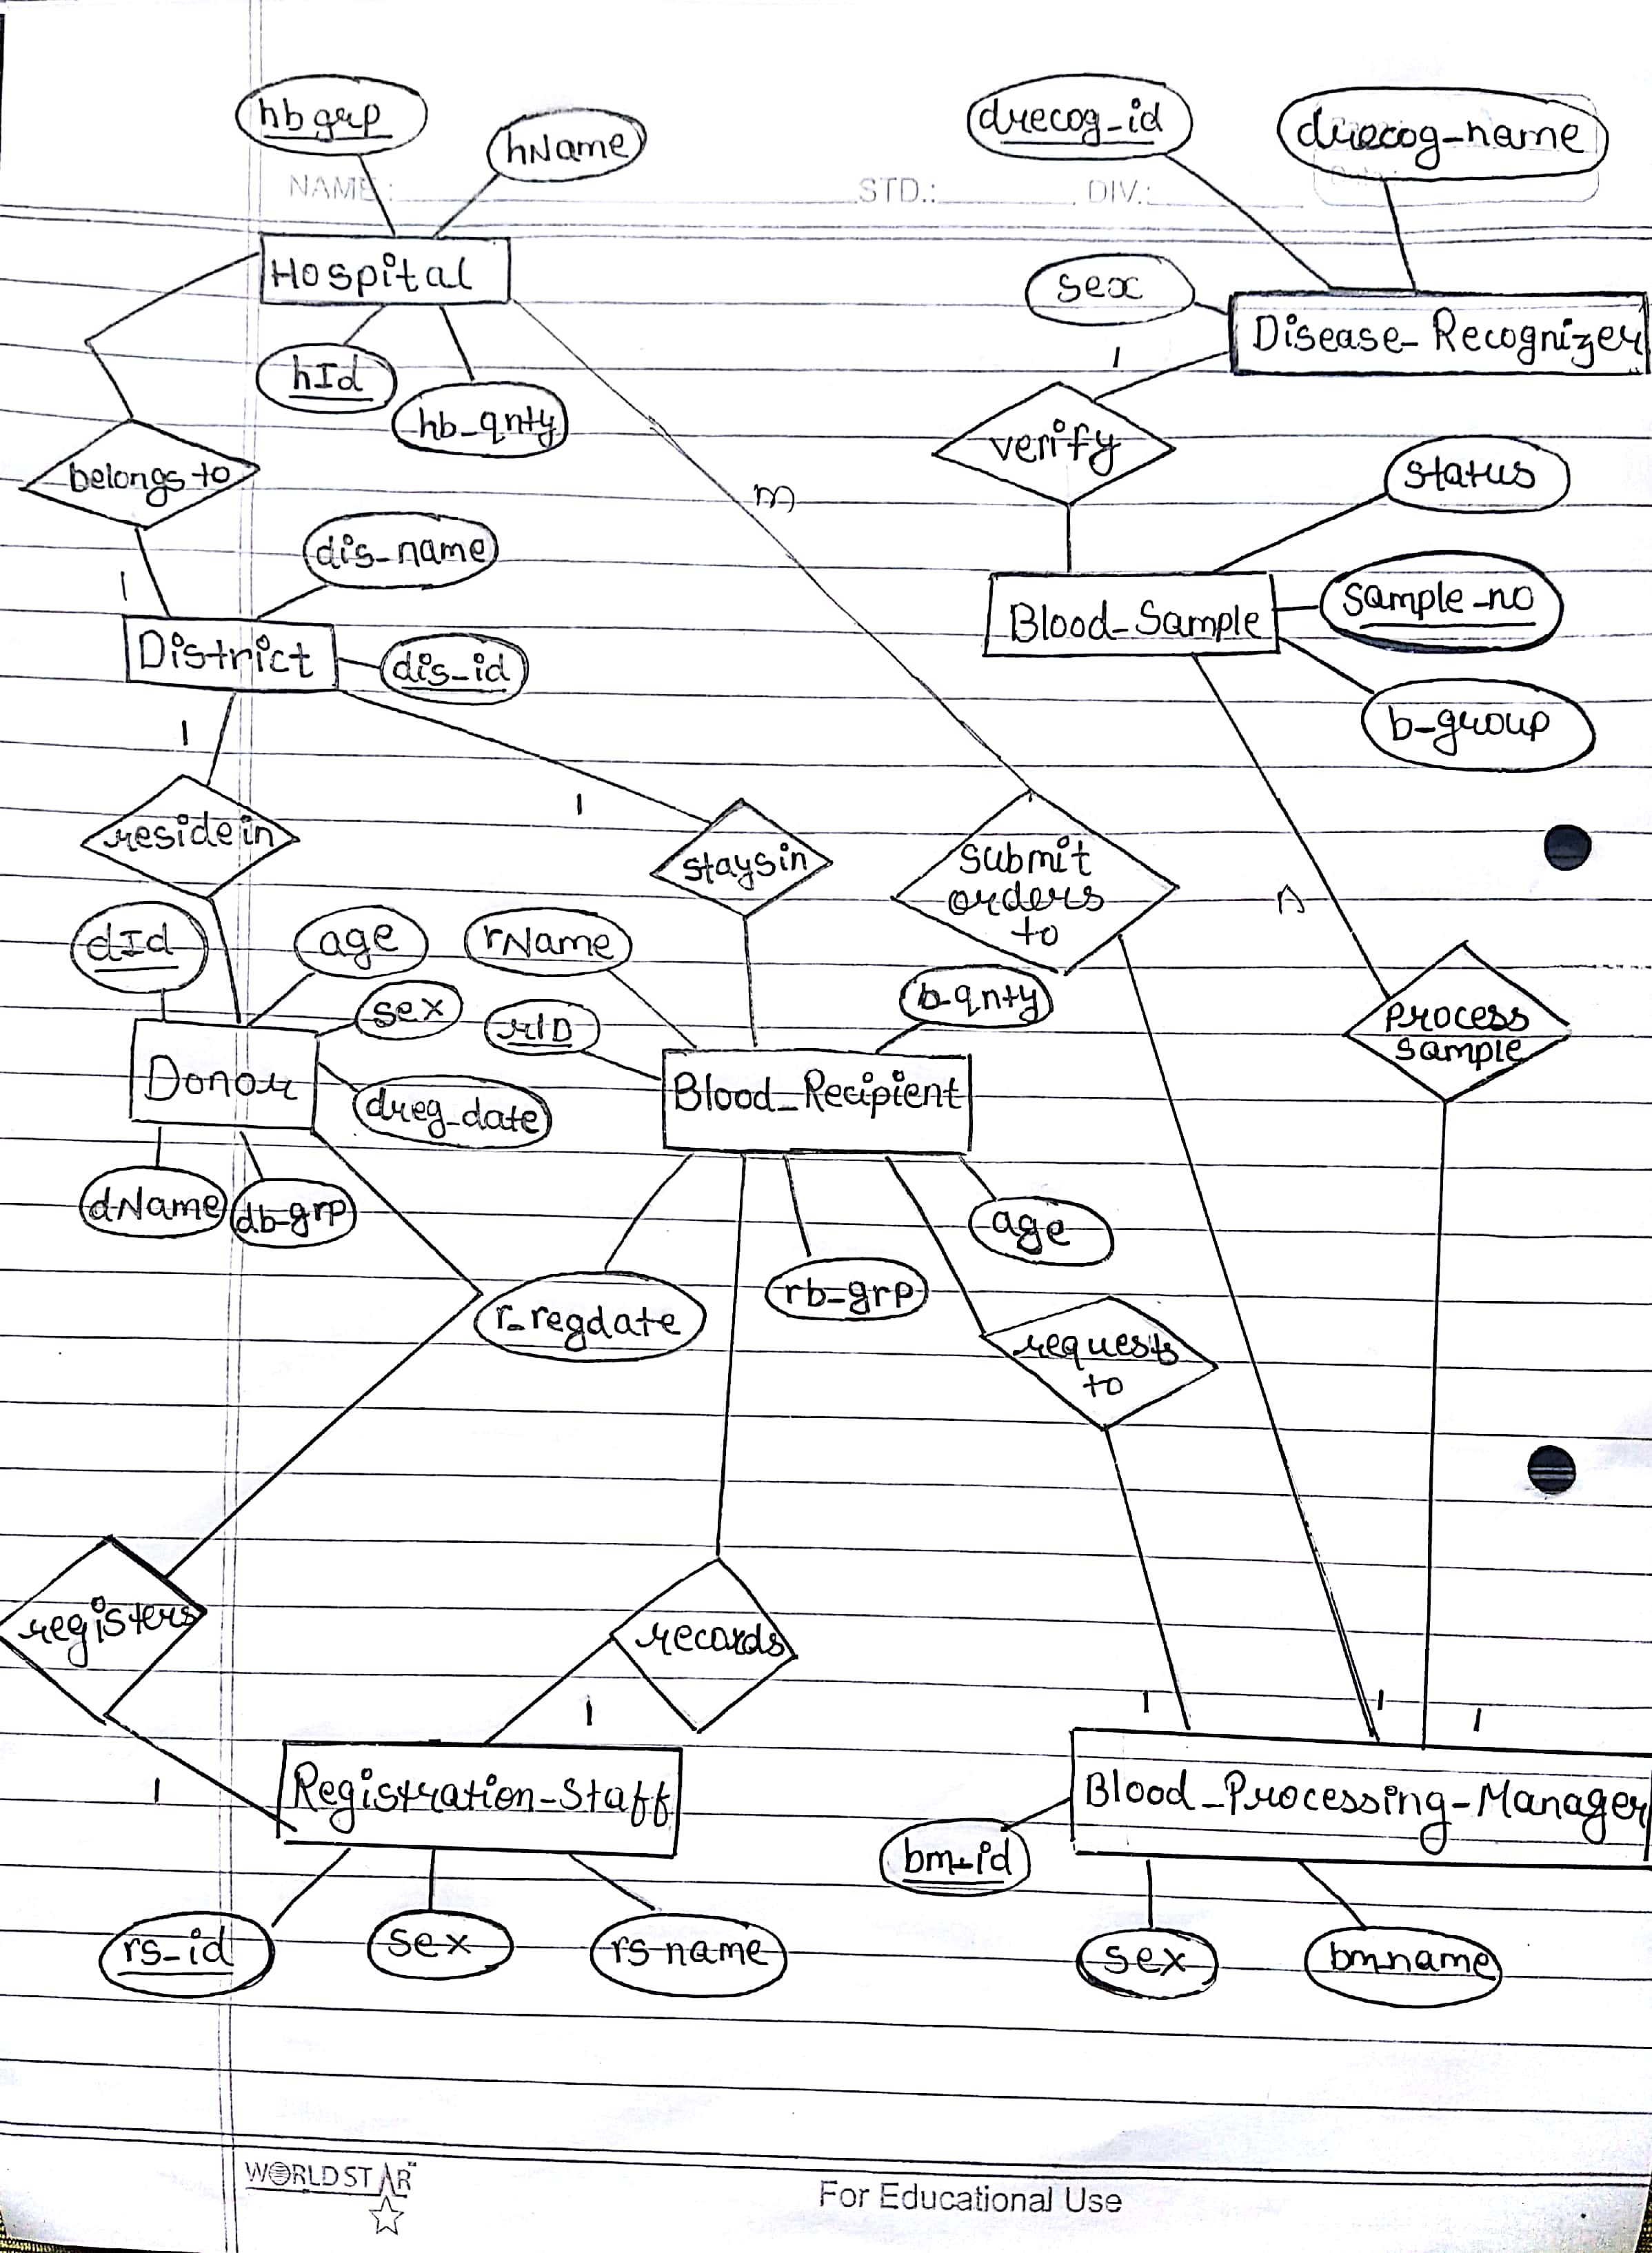 hbgrp
hName
drecog_id
drecog-name
NAME :
STD.:
DIV.:
Hospital
sex
Disease_Recognizer
1
hId
hb_qnty
verify
belongs to
status
m
dis_name
1
sample_no
Blood_Sample
District
dis_id
b-group
1
1
residein
staysin
submit
orders
to
n
dId
age
rName
sex
rID
b-qnty
process
sample
Donor
Blood_Recipient
dreg_date
dName
db-grp
age
rb-grp
r_regdate
requests
to
registers
records
1
1
1
1
1
Registration-Staff
Blood_Processing-Manager
bm-id
rs_id
sex
rs name
sex
bmname
WORLD STAR
For Educational Use